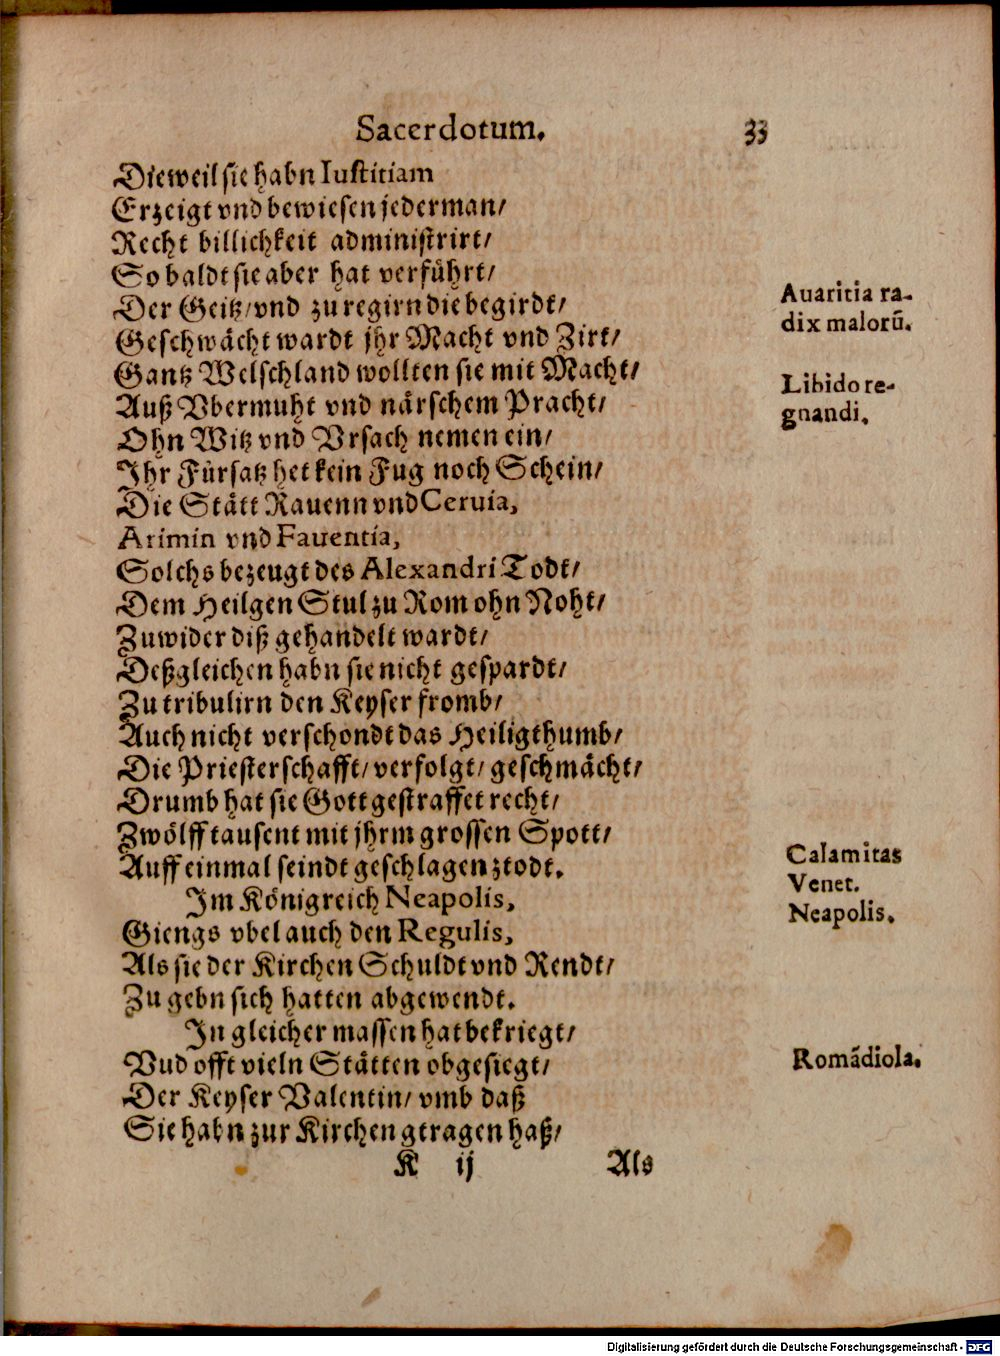 Sacerdotum. 33
Dieweil sie habn Iustitiam
Erzeigt vnd bewiesen jederman/
Recht billichkeit administrirt/
So baldt sie aber hat verführt/
Der Geitz/vnd zu regirn die begirdt/
Avaritia ra-
dix malorũ.
Geschwächt wardt jhr Macht vnd Zirt/
Gantz Welschland wollten sie mit Macht/
Libido re-
gnandi.
Auß Vbermuht vnd närschem Pracht/
Ohn Witz vnd Vrsach nemen ein/
Ihr Fürsatz het kein Fug noch Schein/
Die Stätt Rauenn vnd Ceruia,
Arimin vnd Faventia,
Solchs bezeugt des Alexandri Todt/
Dem Heilgen Stul zu Rom ohn Noht/
Zuwider diß gehandelt wardt/
Deßgleichen habn sie nicht gespardt/
Zu tribulirn den Keyser fromb/
Auch nicht verschondt das Heiligthumb/
Die Priesterschafft/verfolgt/geschmächt/
Drumb hat sie Gott gestraffet recht/
Zwölff tausent mit jhrm grossen Spott/
Auff einmal seindt geschlagen ztodt.
Calamitas
Venet.
Im Königreich Neapolis,
Neapolis.
Giengs vbel auch den Regulis,
Als sie der Kirchen Schuldt vnd Rendt/
Zu gebn sich hatten abgewendt.
In gleicher massen hat bekriegt/
Vud offt vieln Stätten obgesiegt/
Romãdiola.
Der Keyser Valentin/ vmb daß
Sie habn zur Kirchen getragen haß/
K ij Als
Digitalisierung gefördert durch die Deutsche Forschungsgemeinschaft - DFG